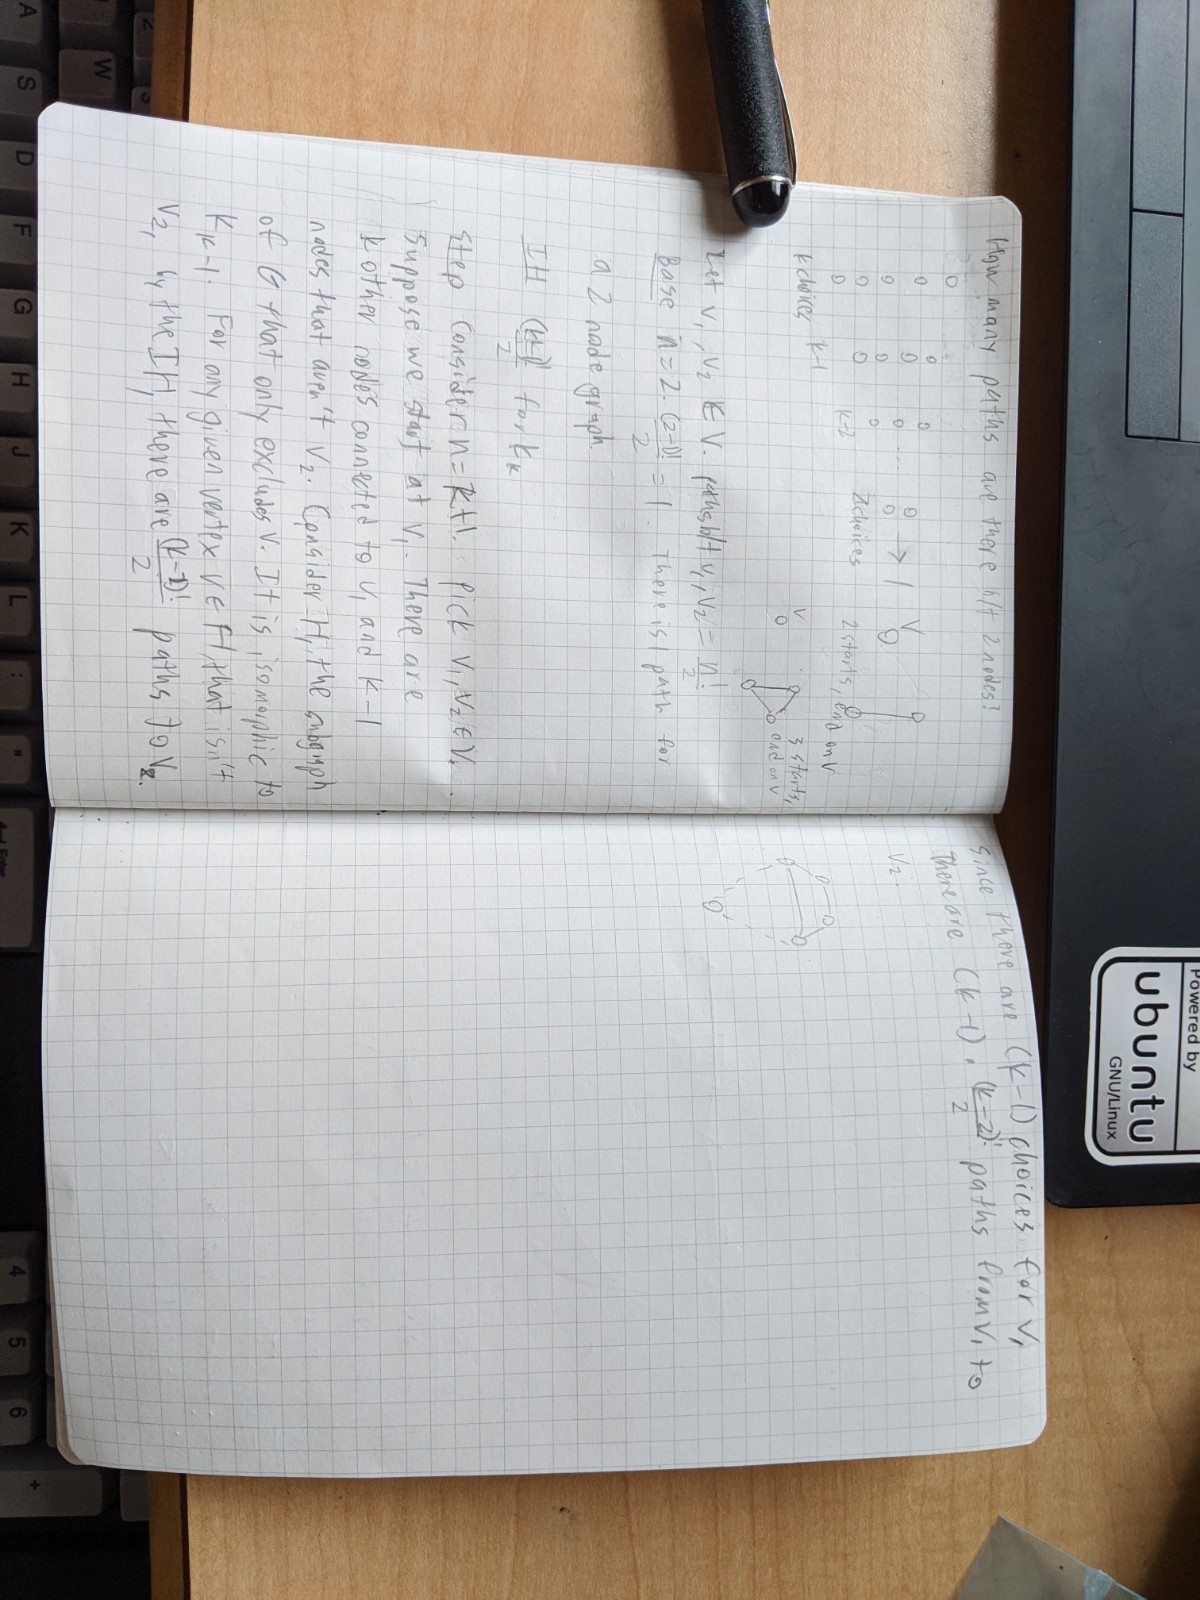 How many paths are there b/t 2 nodes?
k choices
k-1
k-2
2 choices
2 starts, end on V
V
V
3 starts,
end on V
Let v1, v2 ∈ V. paths b/t v1, v2 = n!/2
Base n=2. (2-1)!/2 = 1. There is 1 path for
a 2 node graph
IH (k-1)!/2 for Kk
Step Consider n=k+1. Pick v1, v2 ∈ V.
Suppose we start at V1. There are
k other nodes connected to v1 and k-1
nodes that aren't v2. Consider H, the subgraph
of G that only excludes v. It is isomorphic to
Kk-1. For any given vertex v ∈ H, that isn't
v2, by the IH, there are (k-1)!/2 paths to v2.
Since there are (k-1) choices for v,
there are (k-1) · (k-2)!/2 paths from v1 to
v2.
Powered by
ubuntu
GNU/Linux
2
W
3
A
S
D
F
G
H
J
K
L
:
"
Enter
4
5
6
+